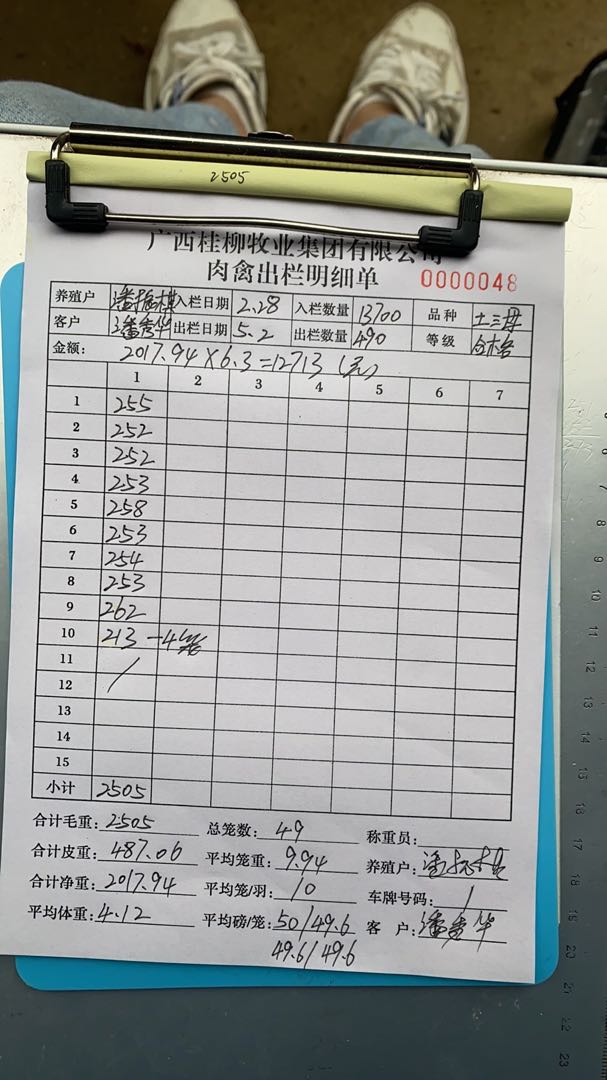 2505
广西桂柳牧业集团有限公司
肉禽出栏明细单 0000048
养殖户 潘振棋 入栏日期 2.28 入栏数量 13700 品种 土三母
客户 潘秀华 出栏日期 5.2 出栏数量 490 等级 合格
金额: 2017.94×6.3=12713(元)
1 2 3 4 5 6 7
1 255
2 252
3 252
4 253
5 258
6 253
7 254
8 253
9 262
10 213 -4笼
11
12 /
13
14
15
小计 2505
合计毛重: 2505 总笼数: 49 称重员:
合计皮重: 487.06 平均笼重: 9.94 养殖户: 潘振棋
合计净重: 2017.94 平均笼/羽: 10 车牌号码: 1
平均体重: 4.12 平均磅/笼: 50/49.6 客 户: 潘秀华
49.6/49.6